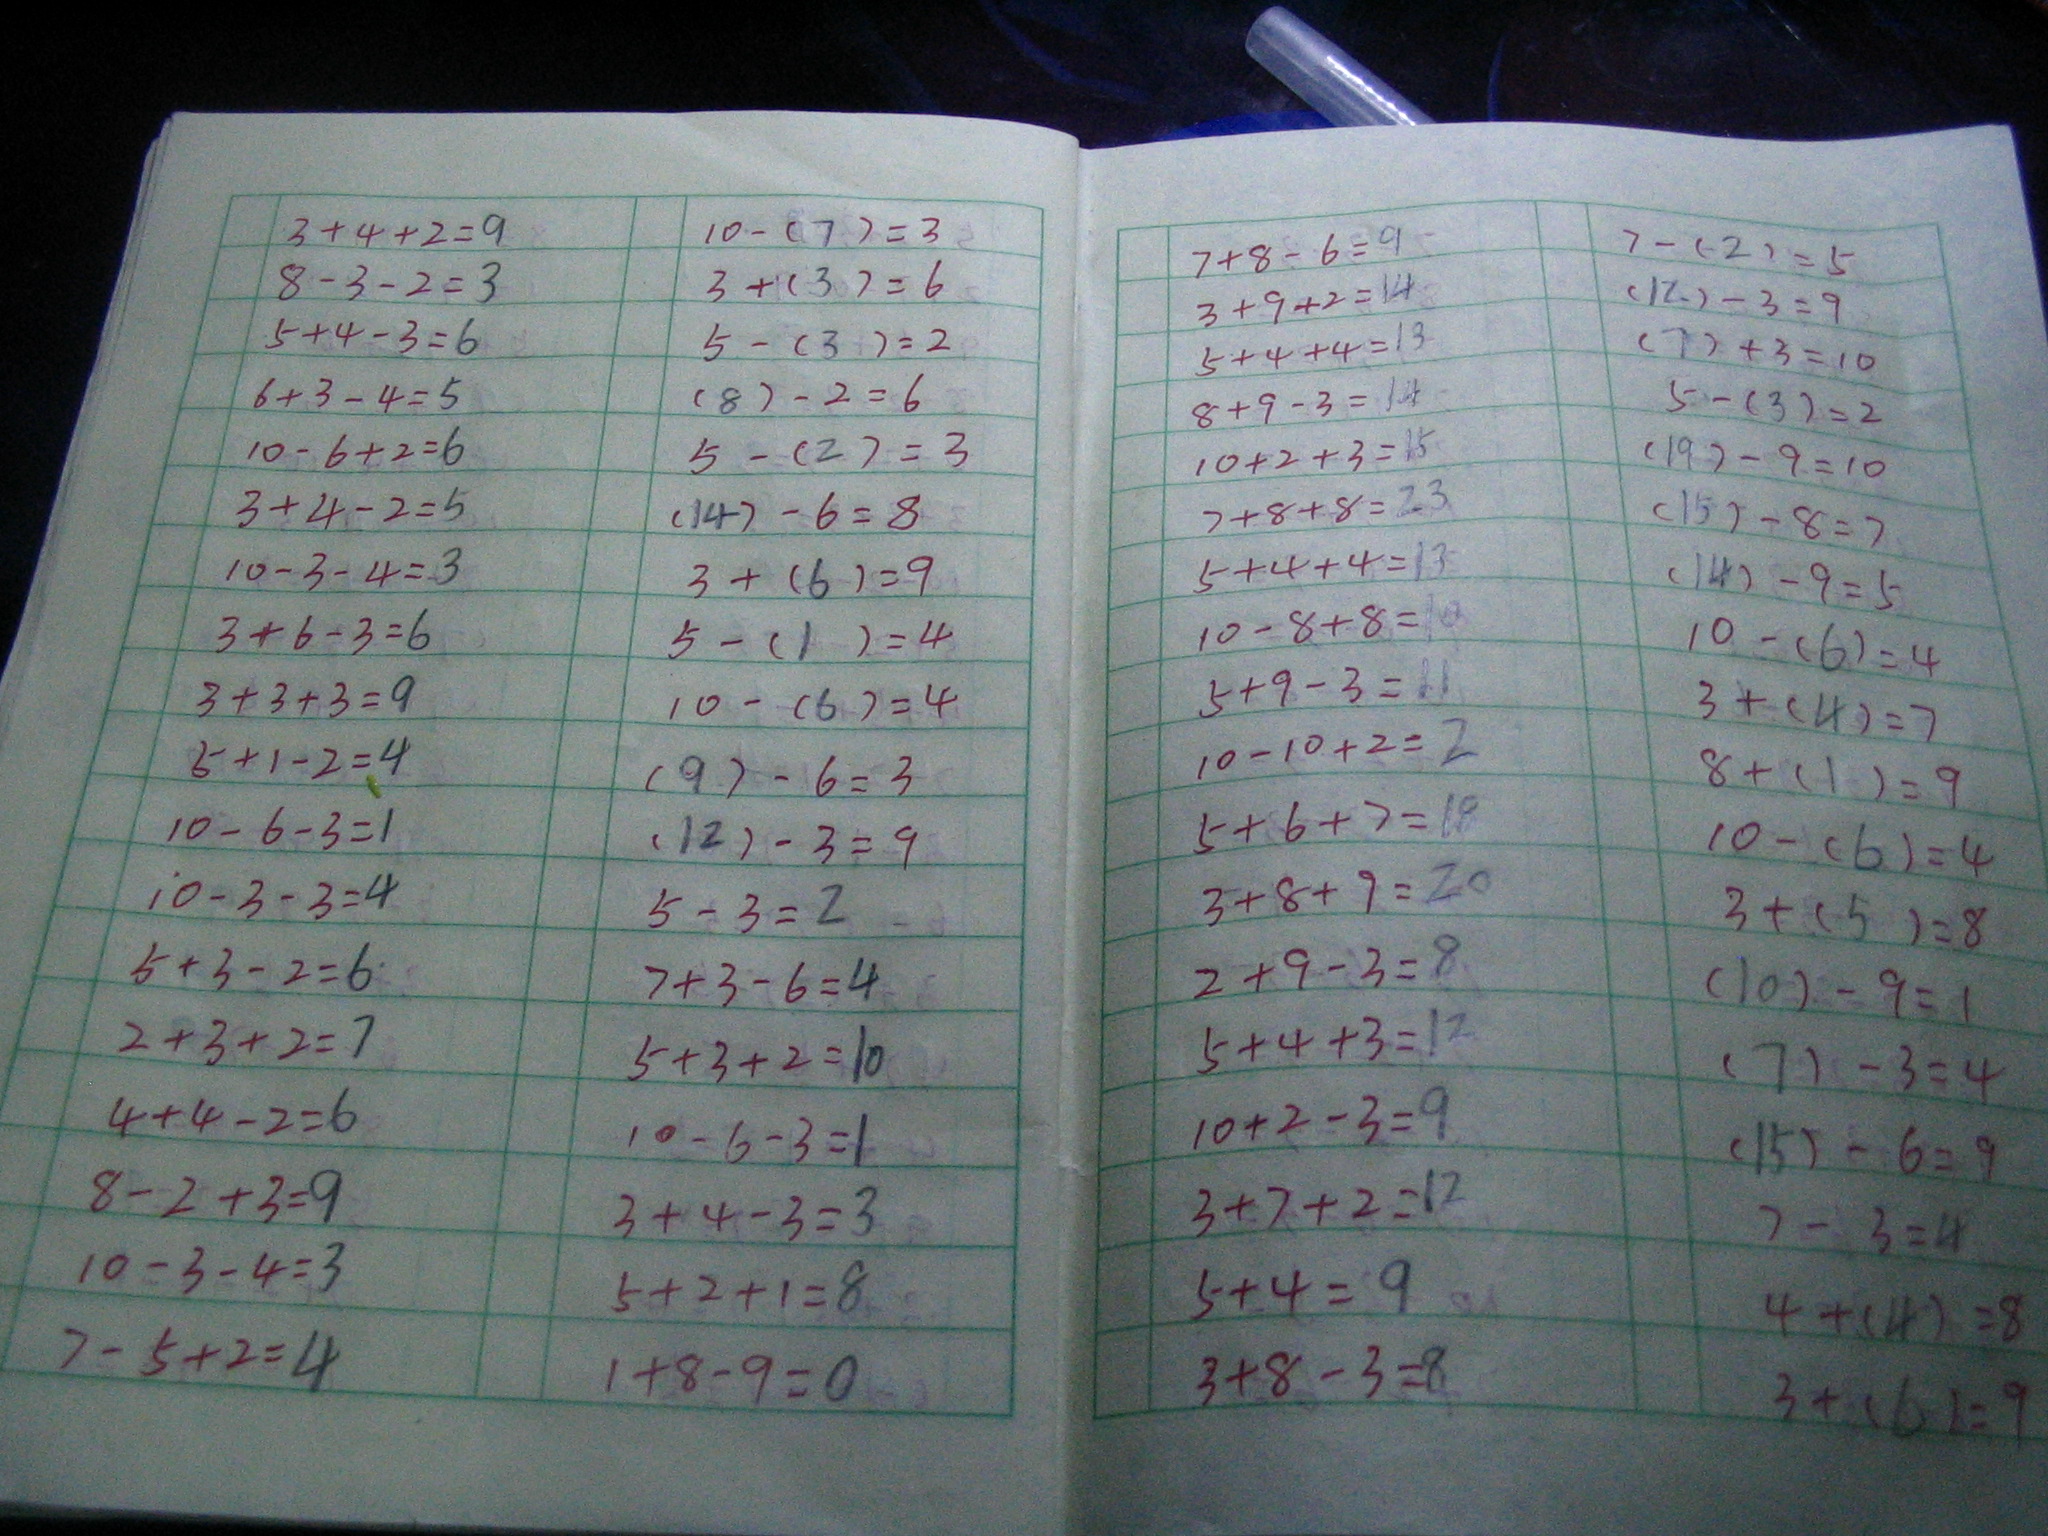 3+4+2=9
8-3-2=3
5+4-3=6
6+3-4=5
10-6+2=6
3+4-2=5
10-3-4=3
3+6-3=6
3+3+3=9
5+1-2=4
10-6-3=1
10-3-3=4
5+3-2=6
2+3+2=7
4+4-2=6
8-2+3=9
10-3-4=3
7-5+2=4
10-(7)=3
3+(3)=6
5-(3)=2
(8)-2=6
5-(2)=3
(14)-6=8
3+(6)=9
5-(1)=4
10-(6)=4
(9)-6=3
(12)-3=9
5-3=2
7+3-6=4
5+3+2=10
10-6-3=1
3+4-3=3
5+2+1=8
1+8-9=0
7+8-6=9
3+9+2=14
5+4+4=13
8+9-3=14
10+2+3=15
7+8+8=23
5+4+4=13
10-8+8=10
5+9-3=11
10-10+2=2
5+6+7=18
3+8+9=20
2+9-3=8
5+4+3=12
10+2-3=9
3+7+2=12
5+4=9
3+8-3=8
7-(2)=5
(12)-3=9
(7)+3=10
5-(3)=2
(19)-9=10
(15)-8=7
(14)-9=5
10-(6)=4
3+(4)=7
8+(1)=9
10-(6)=4
3+(5)=8
(10)-9=1
(7)-3=4
(15)-6=9
7-3=4
4+(4)=8
3+(6)=9